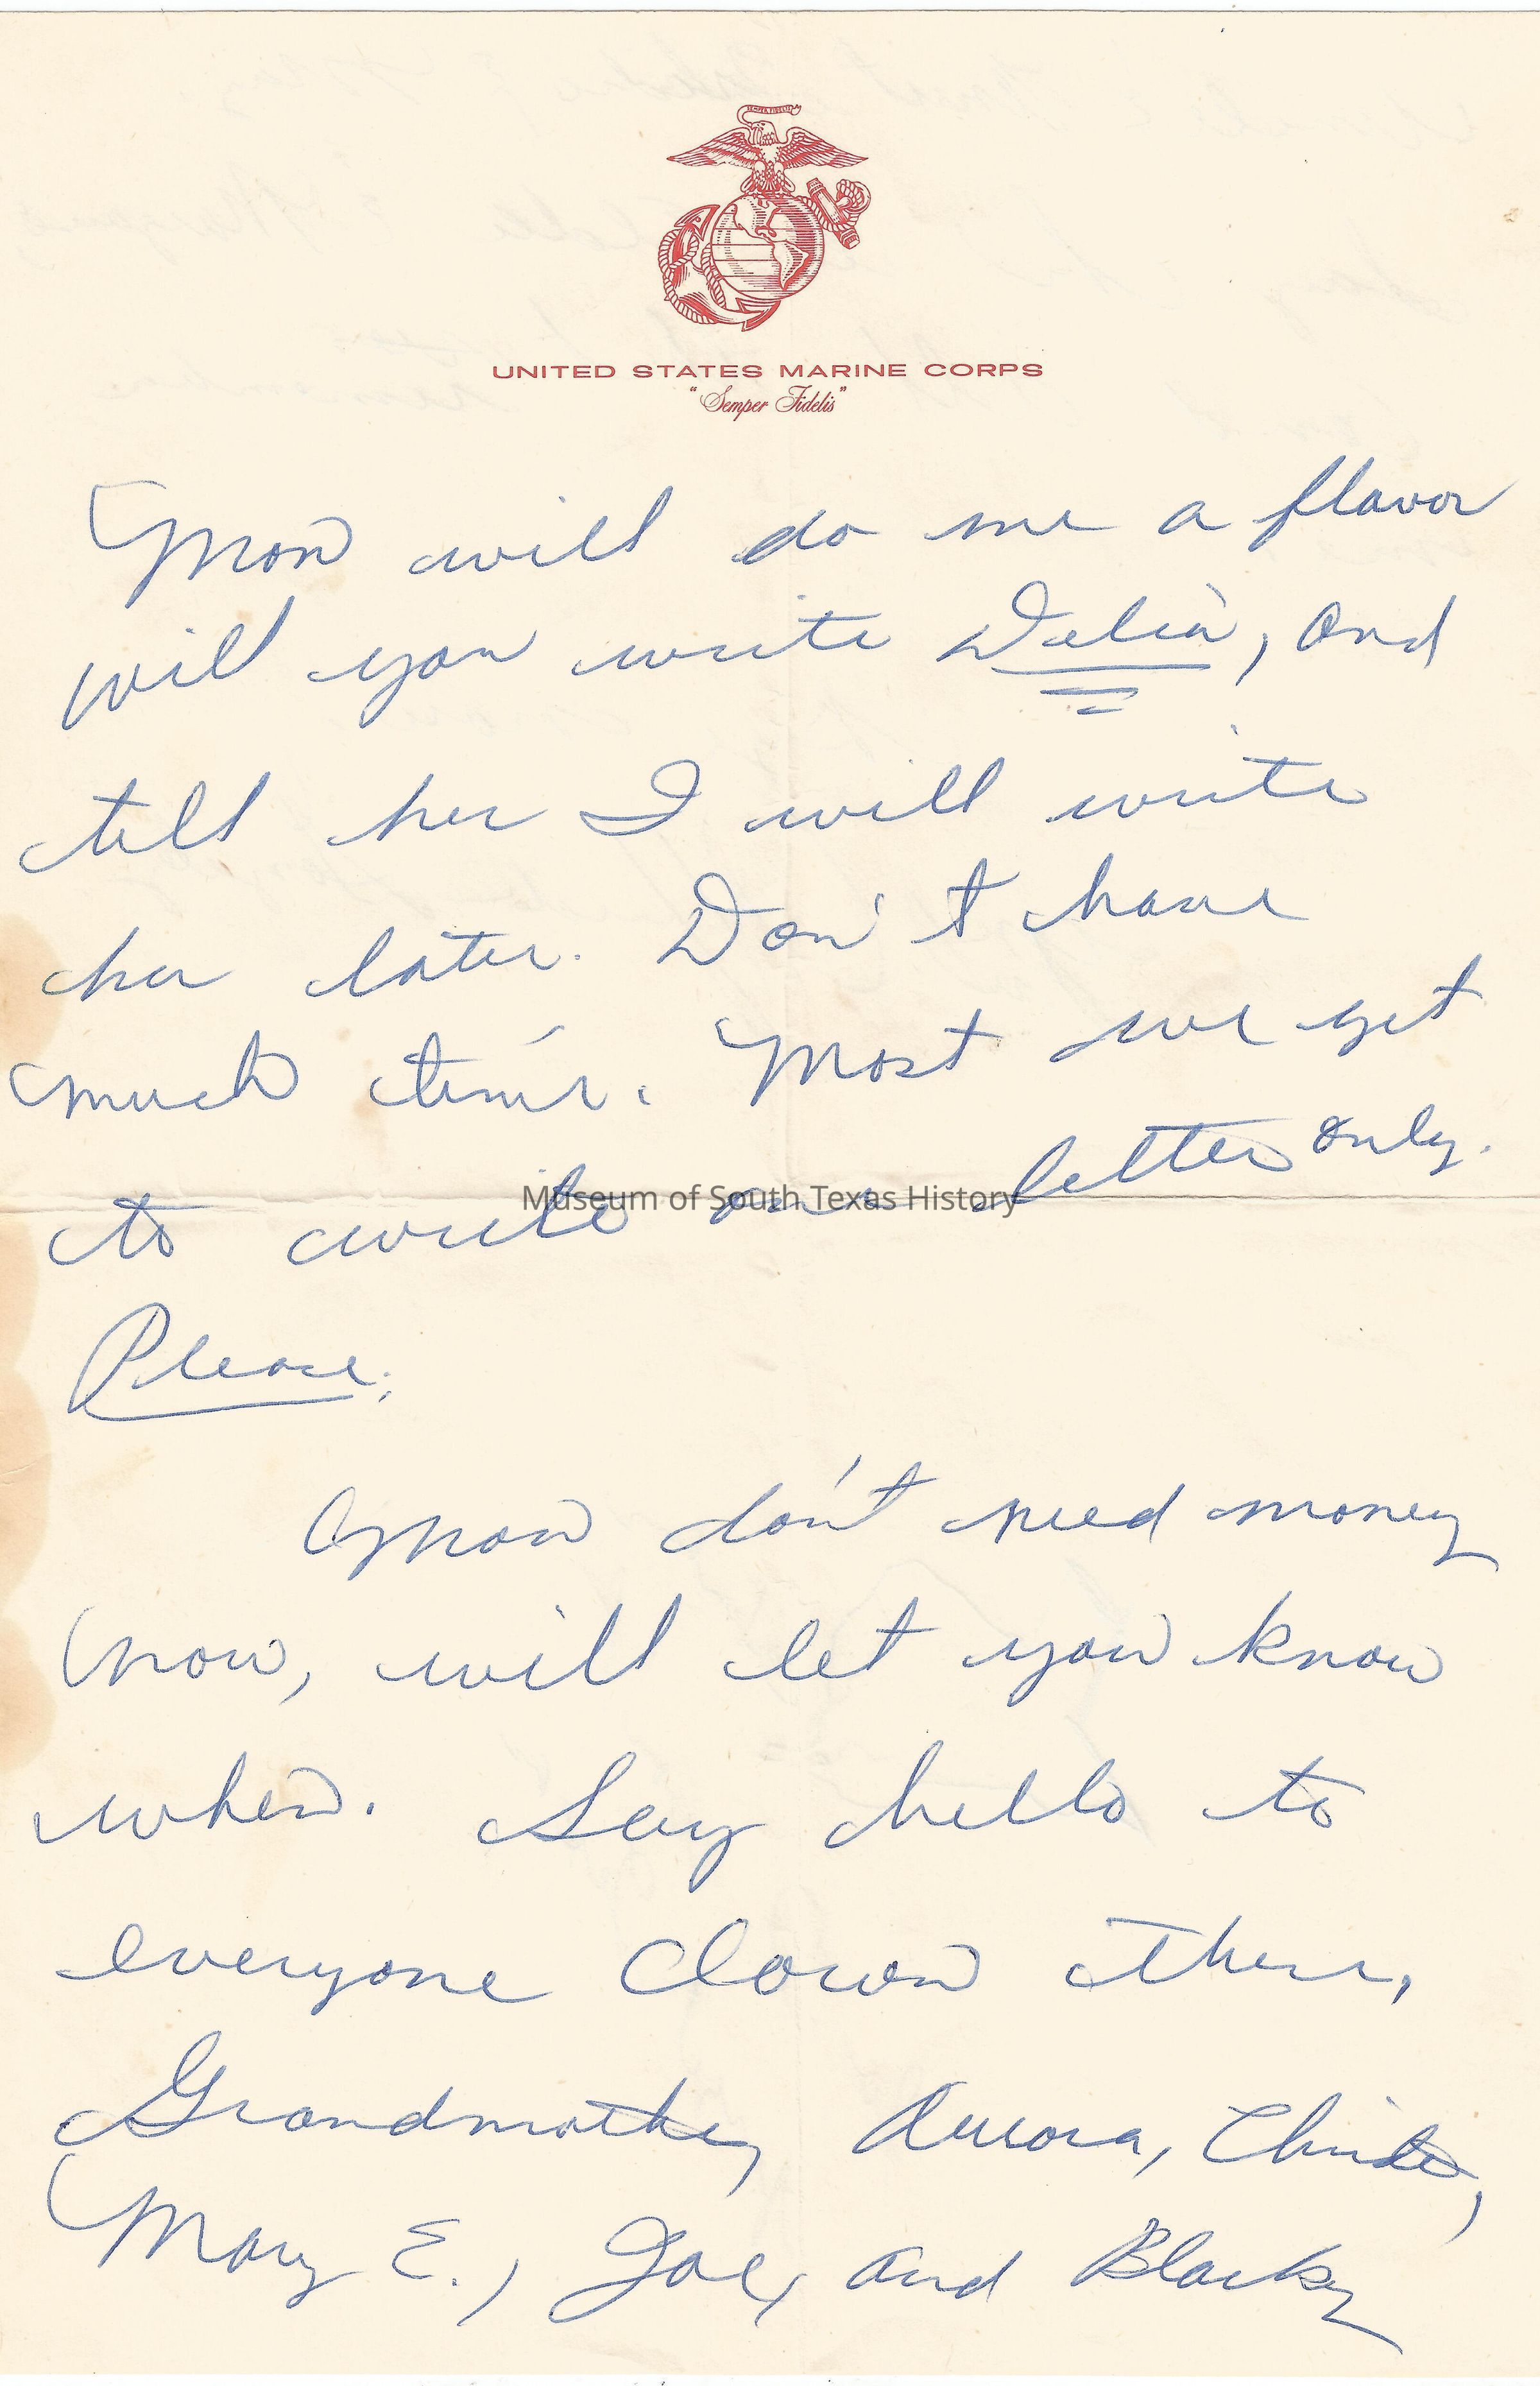 SEMPER FIDELIS
UNITED STATES MARINE CORPS
"Semper Fidelis"
Mom will do me a flavor
will you write Delia, and
tell her I will write
her later. Don't have
much time. Most we get
to write one letter only.
Museum of South Texas History
Please.
Mom don't need money
now, will let you know
when. Say hello to
everyone down there,
Grandmother, Aurora,
Mary E., Joe, and Blacky